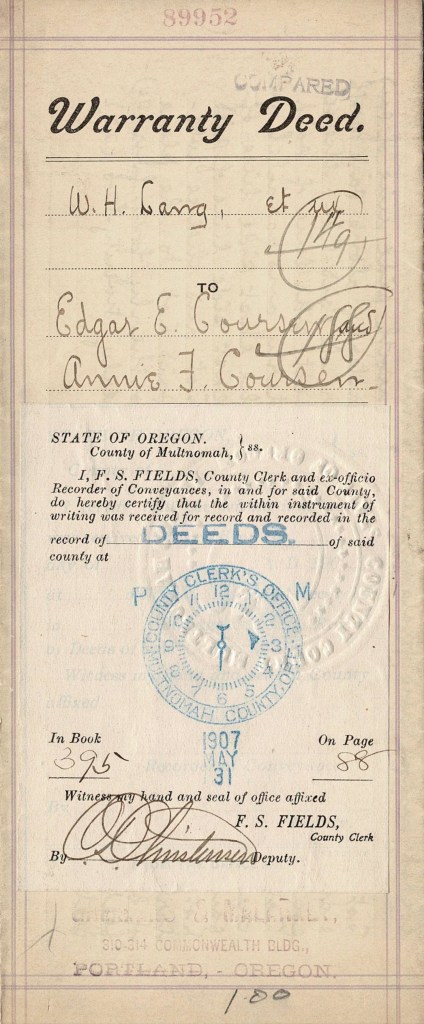 89952
COMPARED
Warranty Deed.
W. H. Lang, et ux
149
TO
Edgar E. Coursen and
88
Annie F. Coursen
STATE OF OREGON.
County of Multnomah, } ss.
I, F. S. FIELDS, County Clerk and ex-officio
Recorder of Conveyances, in and for said County,
do hereby certify that the within instrument of
writing was received for record and recorded in the
record of DEEDS. of said
county at
P M
COUNTY CLERK'S OFFICE
12
3
4
5
6
7
8
9
10
MULTNOMAH COUNTY, ORE.
1907
MAY
31
In Book On Page
395 88
Witness my hand and seal of office affixed
F. S. FIELDS,
County Clerk
By Deputy.
310-314 COMMONWEALTH BLDG.,
PORTLAND, - OREGON.
1.00